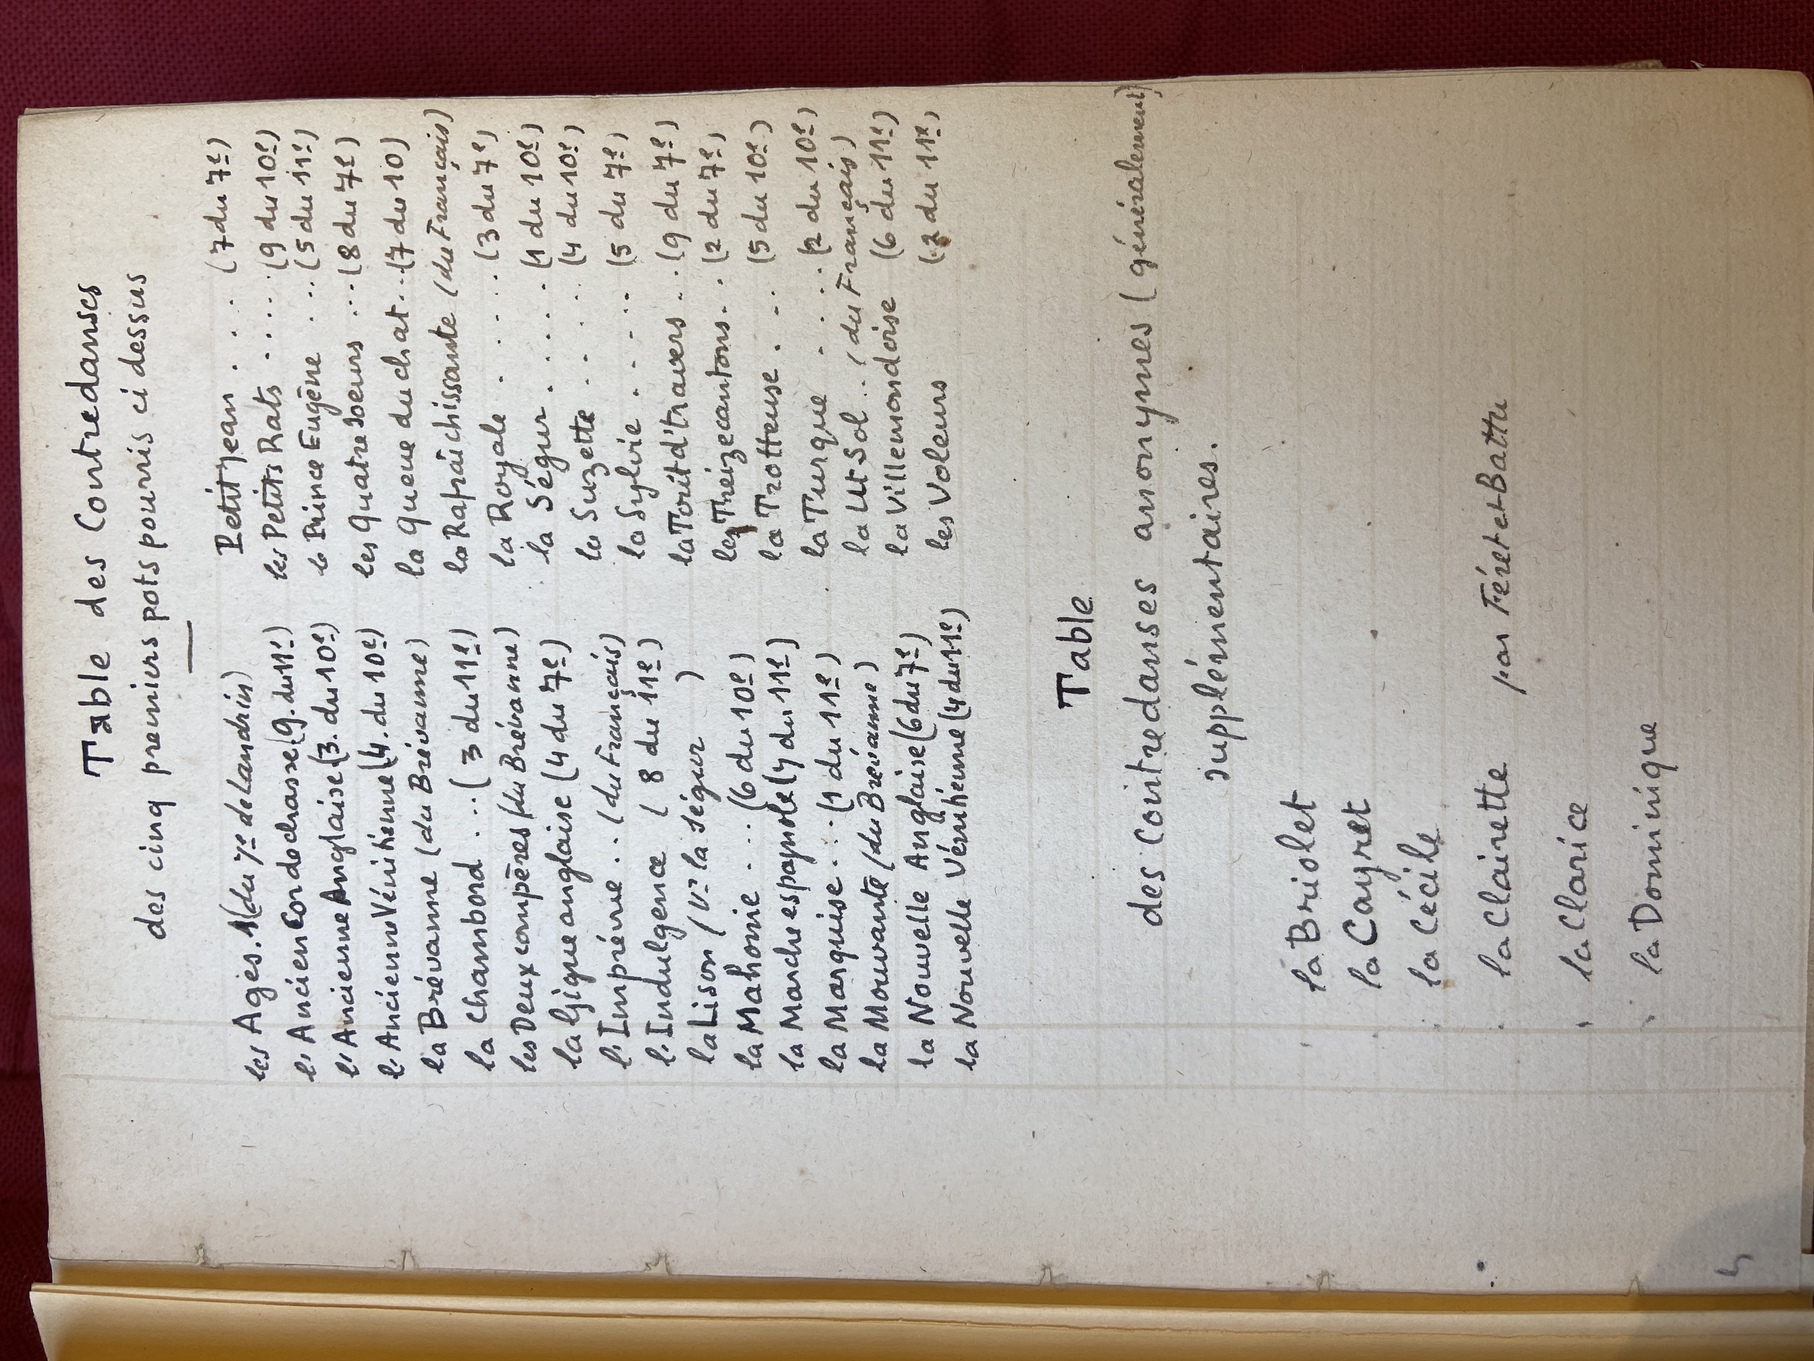 Table des Contredanses
des cinq premiers pots pourris ci dessus
les Ages. 1 (du 7e de Landrin)
l'Ancien Cor de chasse (9. du 11e)
l'Ancienne Anglaise (3. du 10e)
l'Ancienne Vénitienne (4. du 10e)
la Brévanne (du Brévanne)
la Chambord . . . ( 3 du 11e)
les Deux compères (du Brévanne)
la Gigue anglaise (4 du 7e)
l'Imprévue . . (du Français)
l'Indulgence ( 8 du 11e)
la Lison (Vr la Ségur )
la Mahonie . . . . (6 du 10e)
la Marche espagnole (7 du 11e)
la Marquise . . . (1 du 11e)
la Mouvante (du Brévanne)
la Nouvelle Anglaise (6 du 7e)
la Nouvelle Vénitienne (4 du 11e)
Petit Jean . . . . (7 du 7e)
les Petits Rats . . . . . (9 du 10e)
le Prince Eugène . . . (5 du 11e)
les Quatre Soeurs . . . (8 du 7e)
la Queue du chat . . (7 du 10)
la Rafraîchissante (du Français)
la Royale . . . . . . (3 du 7e)
la Ségur . . . . . (1 du 10e)
la Suzette . . . . (4 du 10e)
la Sylvie . . . . . (5 du 7e)
la Tort d'travers . . (9 du 7e)
les Treize cantons . . (2 du 7e)
la Trotteuse . . . (5 du 10e)
la Turque . . . . (2 du 10e)
la Ut Sol . . (du Français)
la Villemondoise (6 du 11e)
les Voleurs (2 du 11e)
Table
des Contredanses anonymes (généralement)
supplémentaires.
la Briolet
la Cayret
la Cécile
la Clairette par Féret et Battu
la Clarice
la Dominique